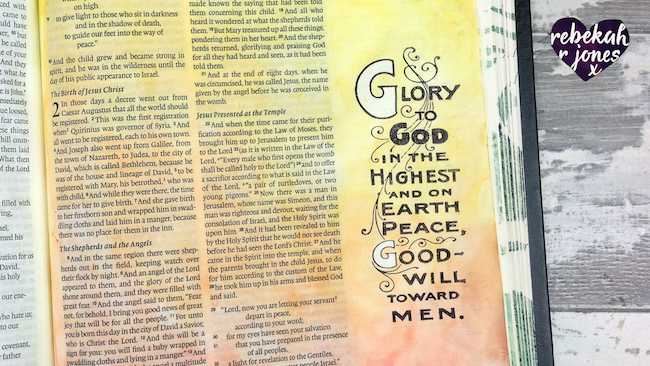 on high
to give light to those who sit in darkness
and in the shadow of death,
to guide our feet into the way of
peace."
And the child grew and became strong in
spirit, and he was in the wilderness until the
day of his public appearance to Israel.
The Birth of Jesus Christ
2 In those days a decree went out from
Caesar Augustus that all the world should
be registered. 2 This was the first registration
when Quirinius was governor of Syria. 3 And
all went to be registered, each to his own town.
4 And Joseph also went up from Galilee, from
the town of Nazareth, to Judea, to the city of
David, which is called Bethlehem, because he
was of the house and lineage of David, 5 to be
registered with Mary, his betrothed, who was
with child. 6 And while they were there, the time
came for her to give birth. 7 And she gave birth
to her firstborn son and wrapped him in swad-
dling cloths and laid him in a manger, because
there was no place for them in the inn.
The Shepherds and the Angels
8 And in the same region there were shep-
herds out in the field, keeping watch over
their flock by night. 9 And an angel of the Lord
appeared to them, and the glory of the Lord
shone around them, and they were filled with
great fear. 10 And the angel said to them, "Fear
not, for behold, I bring you good news of great
joy that will be for all the people. 11 For unto
you is born this day in the city of David a Savior,
who is Christ the Lord. 12 And this will be a
sign for you: you will find a baby wrapped in
swaddling cloths and lying in a manger." 13 And
made known the saying that had been told
them concerning this child. 18 And all who
heard it wondered at what the shepherds told
them. 19 But Mary treasured up all these things,
pondering them in her heart. 20 And the shep-
herds returned, glorifying and praising God
for all they had heard and seen, as it had been
told them.
21 And at the end of eight days, when he
was circumcised, he was called Jesus, the name
given by the angel before he was conceived in
the womb.
Jesus Presented at the Temple
22 And when the time came for their puri-
fication according to the Law of Moses, they
brought him up to Jerusalem to present him
to the Lord 23 (as it is written in the Law of the
Lord, "Every male who first opens the womb
shall be called holy to the Lord") 24 and to offer
a sacrifice according to what is said in the Law
of the Lord, "a pair of turtledoves, or two
young pigeons." 25 Now there was a man in
Jerusalem, whose name was Simeon, and this
man was righteous and devout, waiting for the
consolation of Israel, and the Holy Spirit was
upon him. 26 And it had been revealed to him
by the Holy Spirit that he would not see death
before he had seen the Lord's Christ. 27 And he
came in the Spirit into the temple, and when
the parents brought in the child Jesus, to do
for him according to the custom of the Law,
28 he took him up in his arms and blessed God
and said,
29 "Lord, now you are letting your servant
depart in peace,
according to your word;
30 for my eyes have seen your salvation
31 that you have prepared in the presence
of all peoples,
32 a light for revelation to the Gentiles,
GLORY
TO
GOD
IN THE
HIGHEST
AND ON
EARTH
PEACE,
GOOD-
WILL
TOWARD
MEN.
rebekah
r jones
x